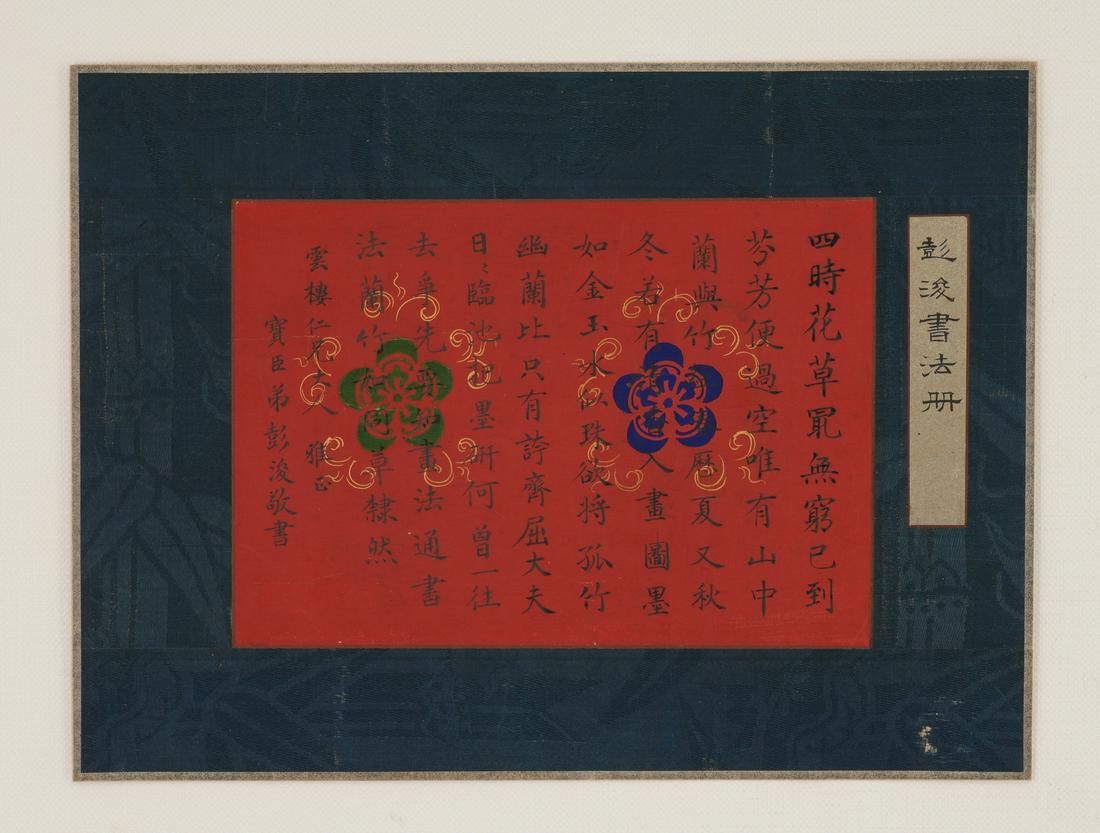 彭浚書法册
四時花草㝡無窮已到
芬芳便過空唯有山中
蘭與竹經春歷夏又秋
冬若有入畫圖墨
如金玉水似珠欲將孤竹
幽蘭比只有誇齊屈大夫
日〻臨池把墨研何曾一往
去爭先要知畫法通書
法蘭竹如同草隸然
雲樓仁兄大人 雅正
寶臣弟彭浚敬書